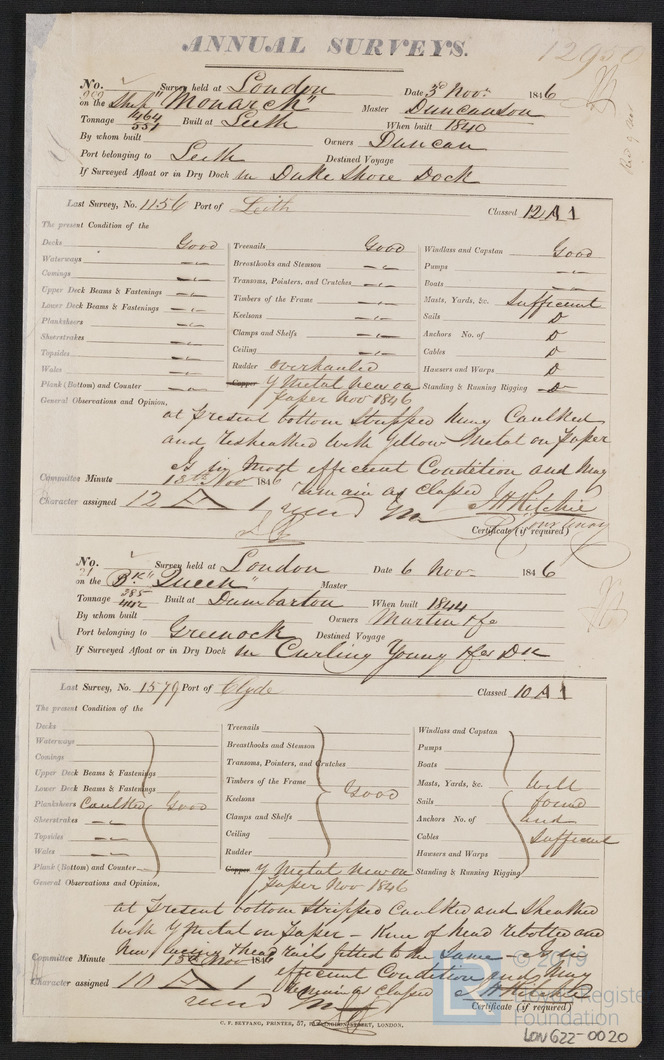 ANNUAL SURVEYS.
12950
No. 999 Survey held at London Date 3d Novr. 1846
on the Ship "Monarch" Master Duncanson
Tonnage 1464 551 Built at Leith When built 1840
By whom built Owners Duncan
Port belonging to Leith Destined Voyage
If Surveyed Afloat or in Dry Dock in Duke Shore Dock
Last Survey, No. 1156 Port of Leith Classed 12 A 1
The present Condition of the
Decks Good Treenails Good Windlass and Capstan Good
Waterways Breasthooks and Stemson Pumps
Comings Transoms, Pointers, and Crutches Boats
Upper Deck Beams & Fastenings Timbers of the Frame Masts, Yards, &c. Sufficient
Lower Deck Beams & Fastenings Keelsons Sails Do
Planksheers Clamps and Shelfs Anchors No. of Do
Sheerstrakes Ceiling Cables Do
Topsides Rudder overhauled Hawsers and Warps Do
Wales Copper Y Metal new on Standing & Running Rigging Do
Plank (Bottom) and Counter paper Nov 1846
General Observations and Opinion,
at present bottom stripped Caulked
and resheathed with Yellow Metal on paper
Is in most efficient Condition and may
remain as classed J H Ritchie
Committee Minute 13th Nov 1846
Character assigned 12 A 1
Certificate (if required)
No. 21 Survey held at London Date 6 Novr. 1846
on the Bk "Queen" Master
Tonnage 285 Built at Dumbarton When built 1844
By whom built Owners Martin & Co
Port belonging to Greenock Destined Voyage
If Surveyed Afloat or in Dry Dock in Curling Young & Co's Dk
Last Survey, No. 1579 Port of Clyde Classed 10 A 1
The present Condition of the
Decks Treenails Windlass and Capstan
Waterways Breasthooks and Stemson Pumps
Comings Transoms, Pointers, and Crutches Boats
Upper Deck Beams & Fastenings Timbers of the Frame Masts, Yards, &c. Well
Lower Deck Beams & Fastenings Keelsons Good Sails found
Planksheers Caulked Good Clamps and Shelfs Anchors No. of and
Sheerstrakes Ceiling Cables Sufficient
Topsides Rudder Hawsers and Warps
Wales Copper Y Metal new on Standing & Running Rigging
Plank (Bottom) and Counter paper Nov 1846
General Observations and Opinion,
at present bottom stripped Caulked and sheathed
with Y Metal on paper – Knee of head rebolted and
new lacing & head rails fitted to the same – Is in
efficient Condition and may
remain as classed J H Ritchie
Committee Minute 13th Nov 1846
Character assigned 10 A 1
Certificate (if required)
C. F. SEYFANG, PRINTER, 57, STREET, LONDON.
© 2019
Lloyd's Register
Foundation
LON622-0020